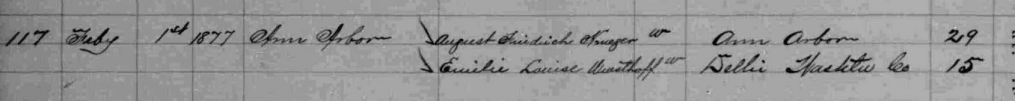 117 Feby 1st 1877 Ann Arbor August Friedrich Krueger W Ann Arbor 29
Emilie Louise W Delhi Washtn Co 15